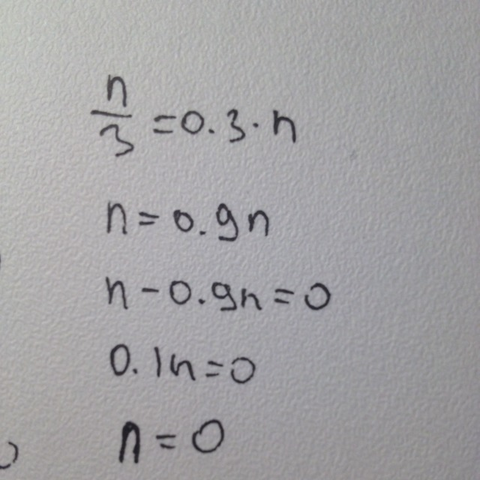 n/3 = 0.3 · n
n = 0.9n
n - 0.9n = 0
0.1n = 0
n = 0